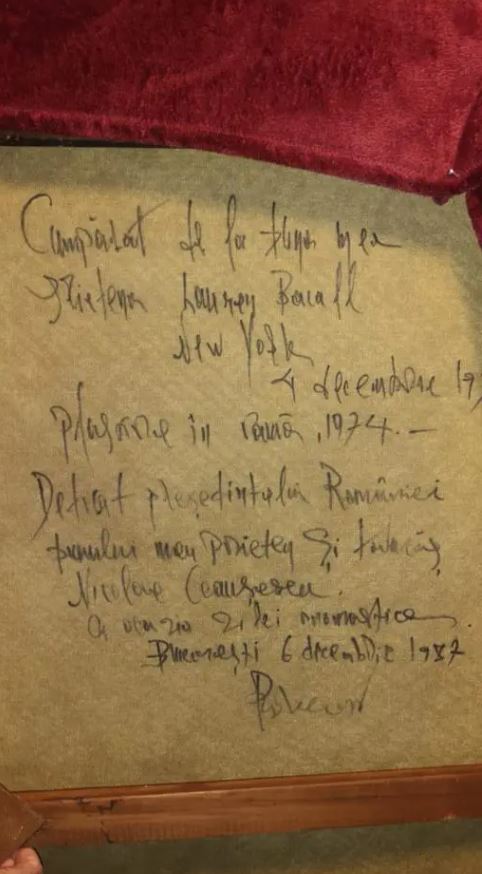 Cumpărat de la buna mea
prietena Lauren Bacall
New York
4 decembrie 19
în ramă, 1974. —
Dedicat președintelui României
bunului meu prieten și
Nicolae Ceaușescu.
Cu ocazia zilei onomastice.
București 6 decembrie 1987